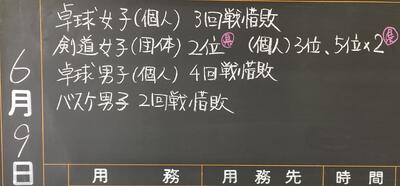 卓球女子(個人) 3回戦惜敗
剣道女子(団体) 2位県 (個人)3位、5位×2県
卓球男子(個人) 4回戦惜敗
バスケ男子 2回戦惜敗
6月9日
用務 用務先 時間